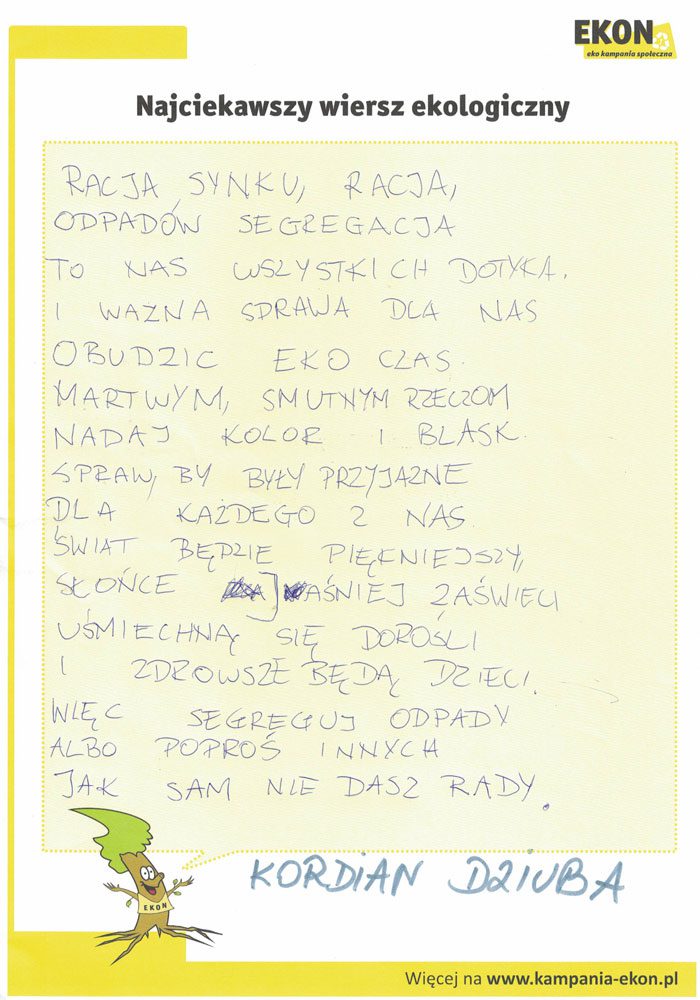 EKON
eko kampania społeczna
Najciekawszy wiersz ekologiczny
RACJA SYNKU, RACJA,
ODPADÓW SEGREGACJA
TO NAS WSZYSTKICH DOTYKA.
I WAŻNA SPRAWA DLA NAS
OBUDZIC EKO CZAS.
MARTWYM, SMUTNYM RZECZOM
NADAJ KOLOR I BLASK.
SPRAW, BY BYŁY PRZYJAZNE
DLA KAŻDEGO Z NAS.
ŚWIAT BĘDZIE PIĘKNIEJSZY,
SŁOŃCE JAŚNIEJ ZAŚWIECI
UŚMIECHNĄ SIĘ DOROŚLI
I ZDROWSZE BĘDĄ DZIECI.
WIĘC SEGREGUJ ODPADY
ALBO POPROŚ INNYCH
JAK SAM NIE DASZ RADY.
KORDIAN DZIUBA
EKON
Więcej na www.kampania-ekon.pl